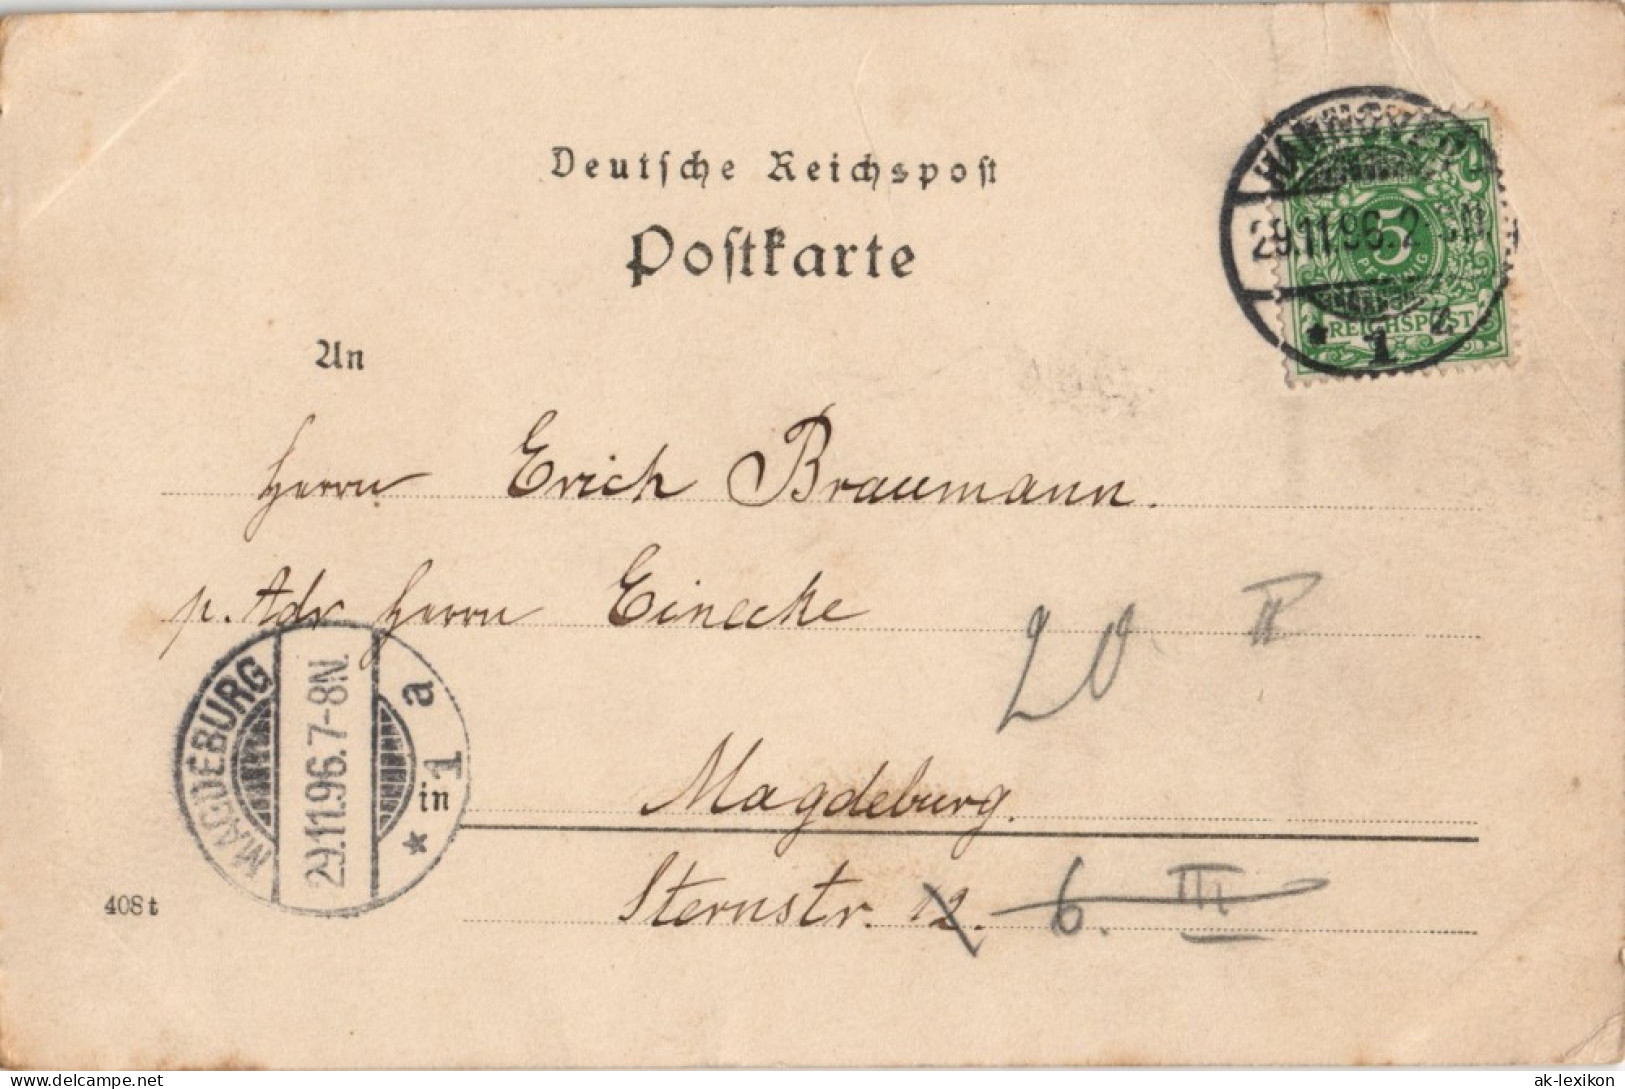 Deutsche Reichspost
Postkarte
HANNOVER
29.11.96.2
5
PFENNIG
REICHSPOST
* 1 z
An
Herrn Erich Braumann.
p. Adr Herrn Einecke
20. II
MAGDEBURG
29.11.96.7-8N.
a
1
*
in
Magdeburg.
Sternstr. 12. 6. III
408t
www.delcampe.net
ak-lexikon